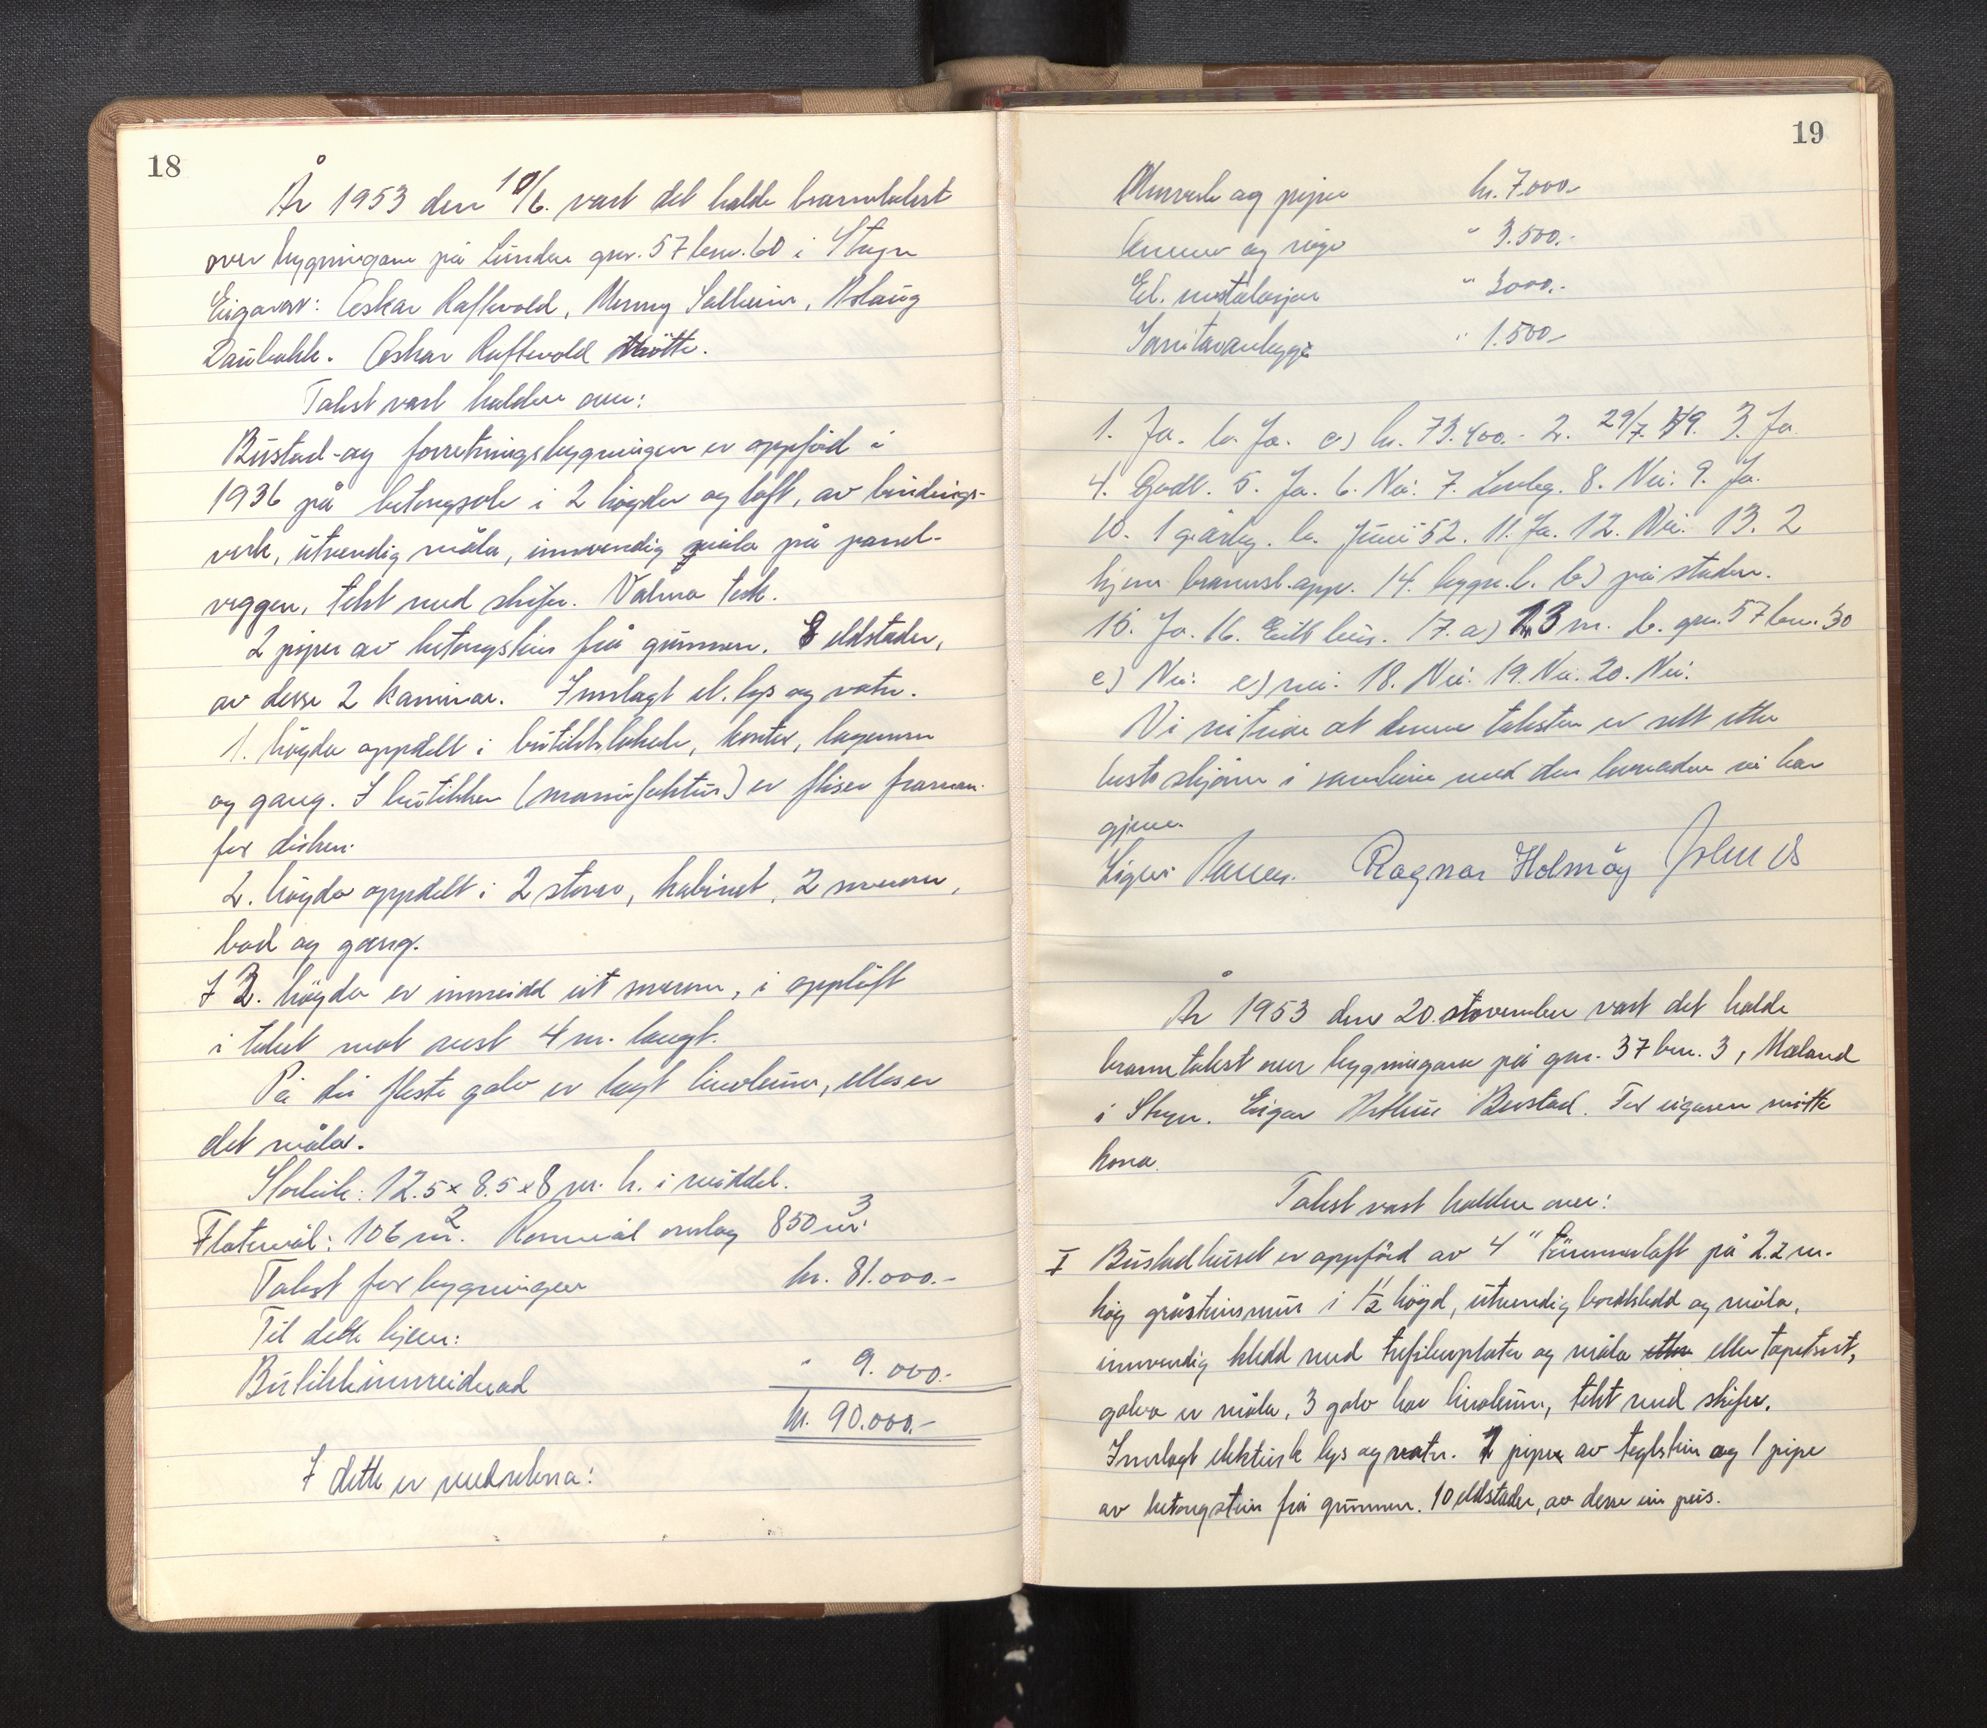 18
År 1953 den 10/6. vart det halde branntakst
over bygningane på Lunden gnr. 57 bnr. 60 i Stryn
Eigarar: Oskar Raftevold, Solheim, Aslaug
Oskar Raftevold møtte.
Takst vart halden over:
Bustad- og forretningsbygningen er oppförd i
1936 på betongsole i 2 högder og loft, av bindings-
verk, utvendig måla, innvendig måla på panel-
veggen, tekt med skifer. Valma tak.
2 piper av betongstein frå grunnen. 8 eldstader,
av desse 2 kaminar. Innlagt el. lys og vatn.
1. högda oppdelt i butikklokale, kontor, lagerrom
og gang. I butikken (manufaktur) er fliser framan-
for disken.
2. högda oppdelt i 2 stover, kabinet, 2 soverom,
bad og gang.
I 3. högda er innreidd eit soverom, i oppløft
i taket mot aust 4 m. langt.
På dei fleste golv er lagt linoleum, elles er
det måla.
Storleik: 12.5 x 8.5 x 8 m. h. i middel.
Flatemål: 106 m². Romмål omlag 850 m³.
Takst for bygningen kr. 81.000.-
Til dette kjem:
Butikkinnreidnad " 9.000.-
kr. 90.000.-
I dette er medrekna:
19
Murverk og piper kr. 7.000.-
Omnar og " 3.500.-
El. installasjon " 3000.-
Sanitæranlegg " 1.500.-
1. Ja. b. Ja. c) kr. 73.400.- 2. 29/7. 49. 3. Ja.
4. Godt. 5. Ja. 6. Nei. 7. 8. Nei. 9. Ja.
10. 1 g. årleg. b. Juni 52. 11. Ja. 12. Nei. 13. 2
hjem. brannsl.app. 14. bygn.l. b) på staden.
15. Ja. 16. Eitt hus. 17. a) 23 m. b. gnr. 57 bnr. 30
c) Nei. e) nei. 18. Nei. 19. Nei. 20. Nei.
Vi vitnar at denne taksten er sett etter
beste skjönn i samhøve med den lovnaden vi har
gjeve.
Ragnar Holmöy
År 1953 den 20. november vart det halde
branntakst over bygningane på gnr. 37 bnr. 3, Mæland
i Stryn. Eigar Arthur Bustad. For eigaren mötte
kona.
Takst vart halden over:
I Bustadhuset er oppförd av 4" tømmerloft på 2.2 m.
høg gråsteinsmur i 1 1/2 högd, utvendig bordkledd og måla,
innvendig kledd med trefiberplater og måla etter eller tapetsert,
golva er måla, 3 golv har linoleum, tekt med skifer.
Innlagt elektrisk lys og vatn. 1 pipe av teglstein og 1 pipe
av betongstein frå grunnen. 10 eldstader, av desse ein peis.